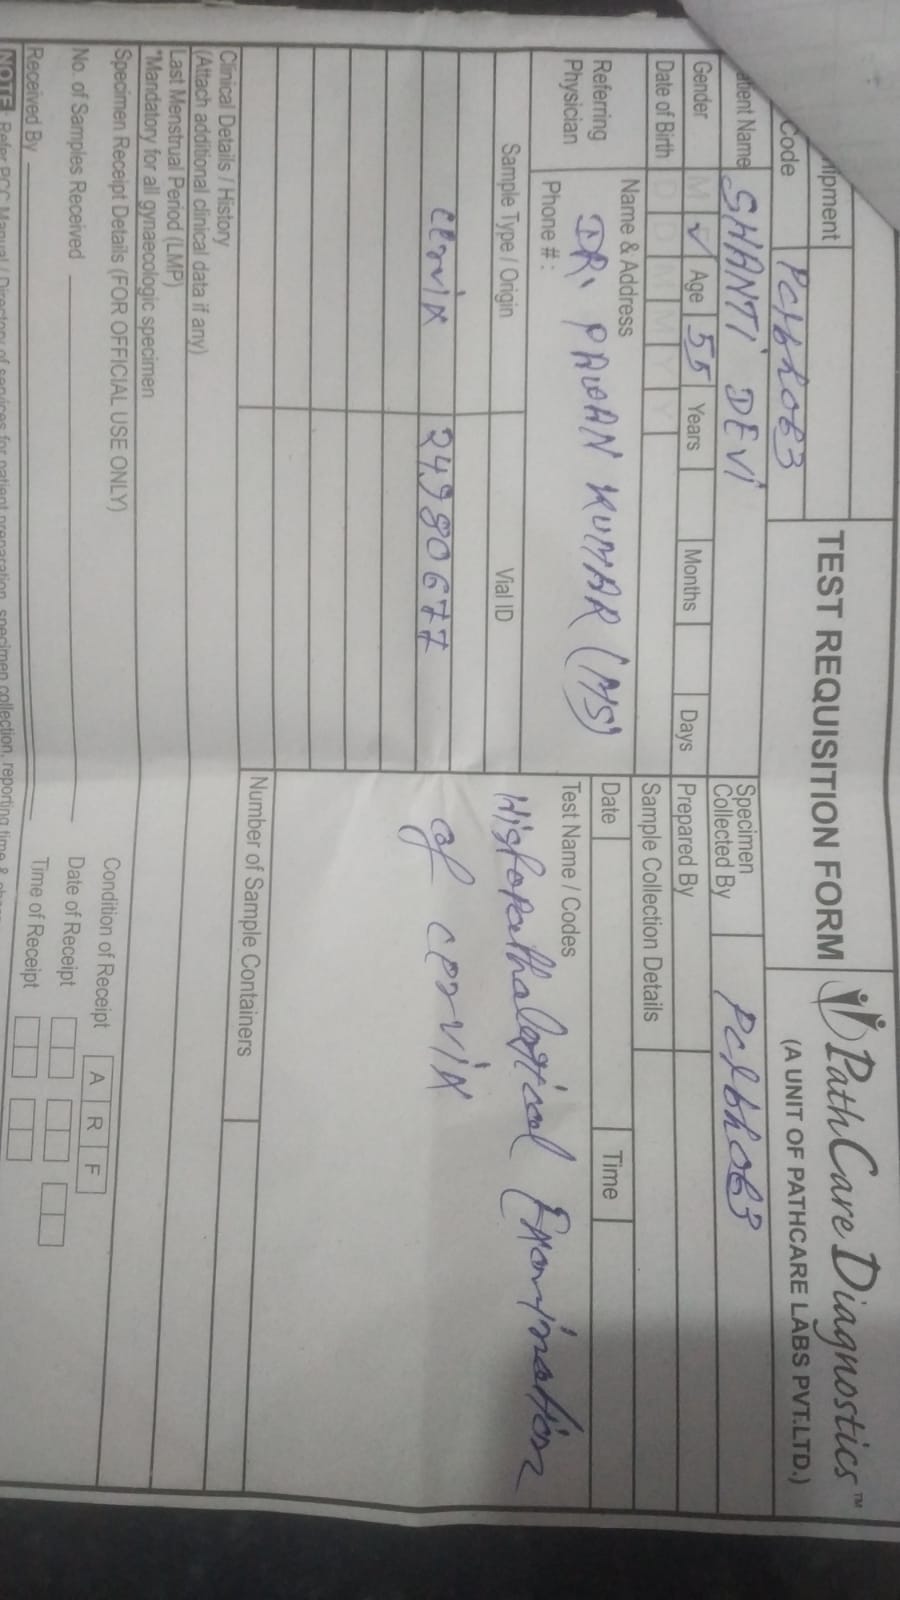 TEST REQUISITION FORM
PathCare Diagnostics™
(A UNIT OF PATHCARE LABS PVT.LTD.)
Code
Patient Name SHANTI DEVI
Gender M ✓ Age 55 Years Months Days
Date of Birth D D M M Y Y
Referring Physician
Name & Address
DR. PAWAN KUMAR (MS)
Phone # :
Specimen Collected By
Prepared By
Sample Collection Details
Date Time
Test Name / Codes
Histopathological Examination
of cervix
Sample Type / Origin Vial ID
cervix 24980677
Number of Sample Containers
Clinical Details / History
(Attach additional clinical data if any)
Last Menstrual Period (LMP)
*Mandatory for all gynaecologic specimen
Specimen Receipt Details (FOR OFFICIAL USE ONLY)
No. of Samples Received
Received By
Condition of Receipt A R F
Date of Receipt
Time of Receipt
NOTE: Refer PCC Manual / Directory of services for patient preparation, specimen collection, reporting time &